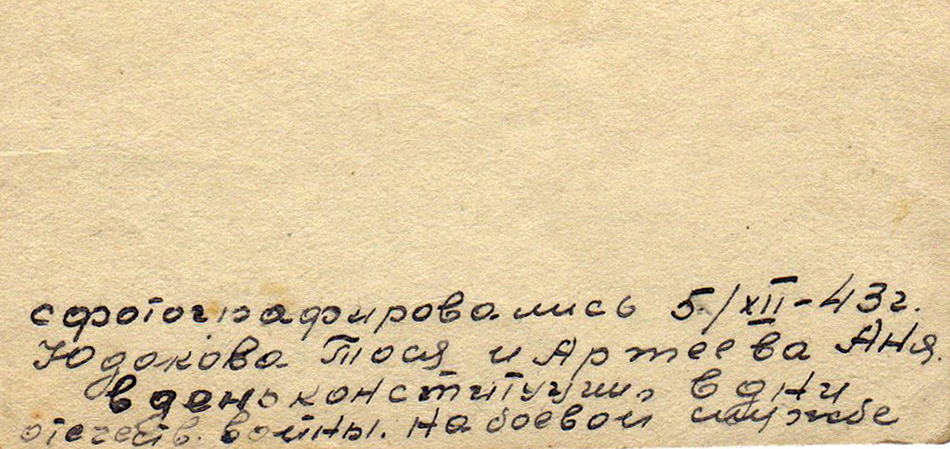 сфотографировались 5/XII-43г.
Юдакова Тося и Артеева Аня.
в день конституции, в дни
отечеств. войны. На боевой службе